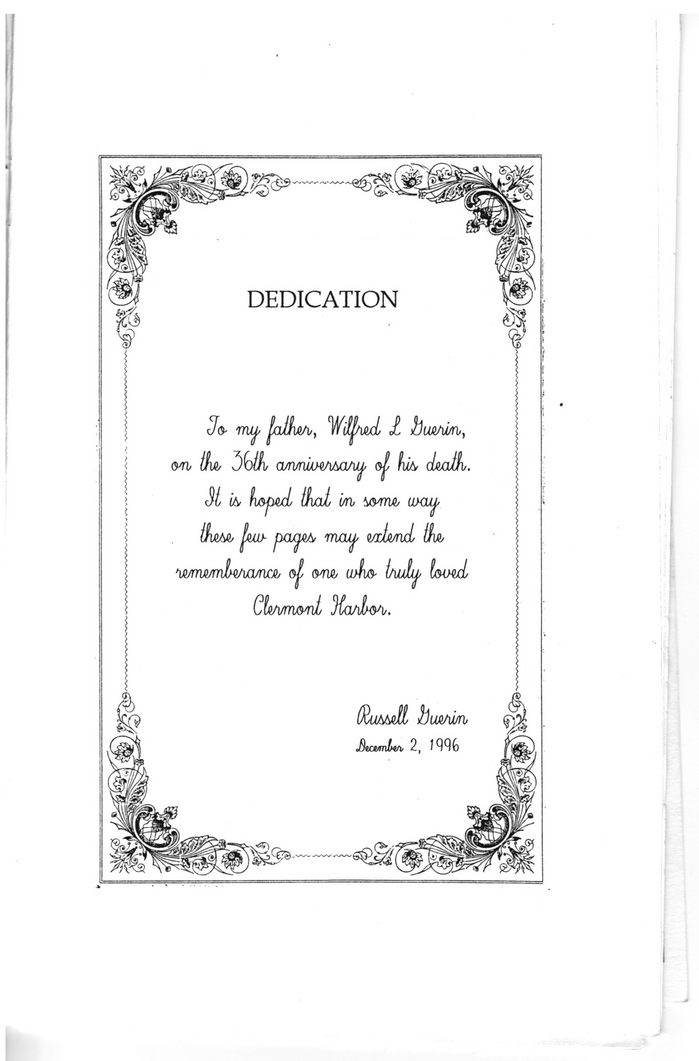 DEDICATION
To my father, Wilfred L Guerin,
on the 36th anniversary of his death.
It is hoped that in some way
these few pages may extend the
rememberance of one who truly loved
Clermont Harbor.
Russell Guerin
December 2, 1996